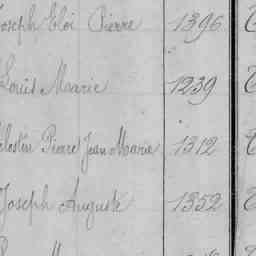 Joseph Eloi Pierre 1396
Louis Marie 1239
Célestin Pierre Jean Marie 1312
Joseph Auguste 1352